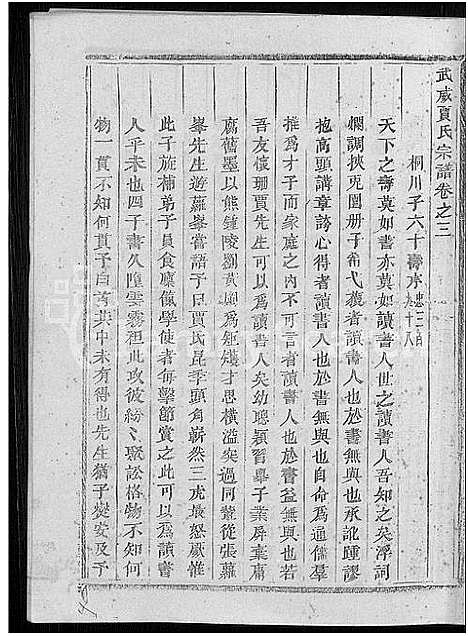 武威賈氏宗譜卷之三
桐川子六十壽水忠三百九十八
天下之壽莫如書亦莫如讀書人世之讀書人吾知之矣浮詞
爛調挾兎園册子希弋獲者讀書人也於書無與也承訛踵謬
抱高頭講章誇心得者讀書人也於書無與也自命為通儒羣
推為才子而家庭之内不可言者讀書人也於書益無與也若
吾友懷珊賈先生可以為讀書人矣幼聰穎習舉子業屏棄庸
腐舊墨以熊鍾陵劉黃岡為矩矱才思橫溢突過同輩從張蘿
峯先生遊蘿峯嘗語予曰賈氏昆季頭角嶄然三虎最怒厥惟
此子旋補弟子員食廩餼學使者每擊節賞之此可以為讀書
人乎未也四子書久墮雲霧祖此攻彼紛紛聚訟格物不知何
物一貫不知何貫予自考其中未有得也先生猶予變安及予